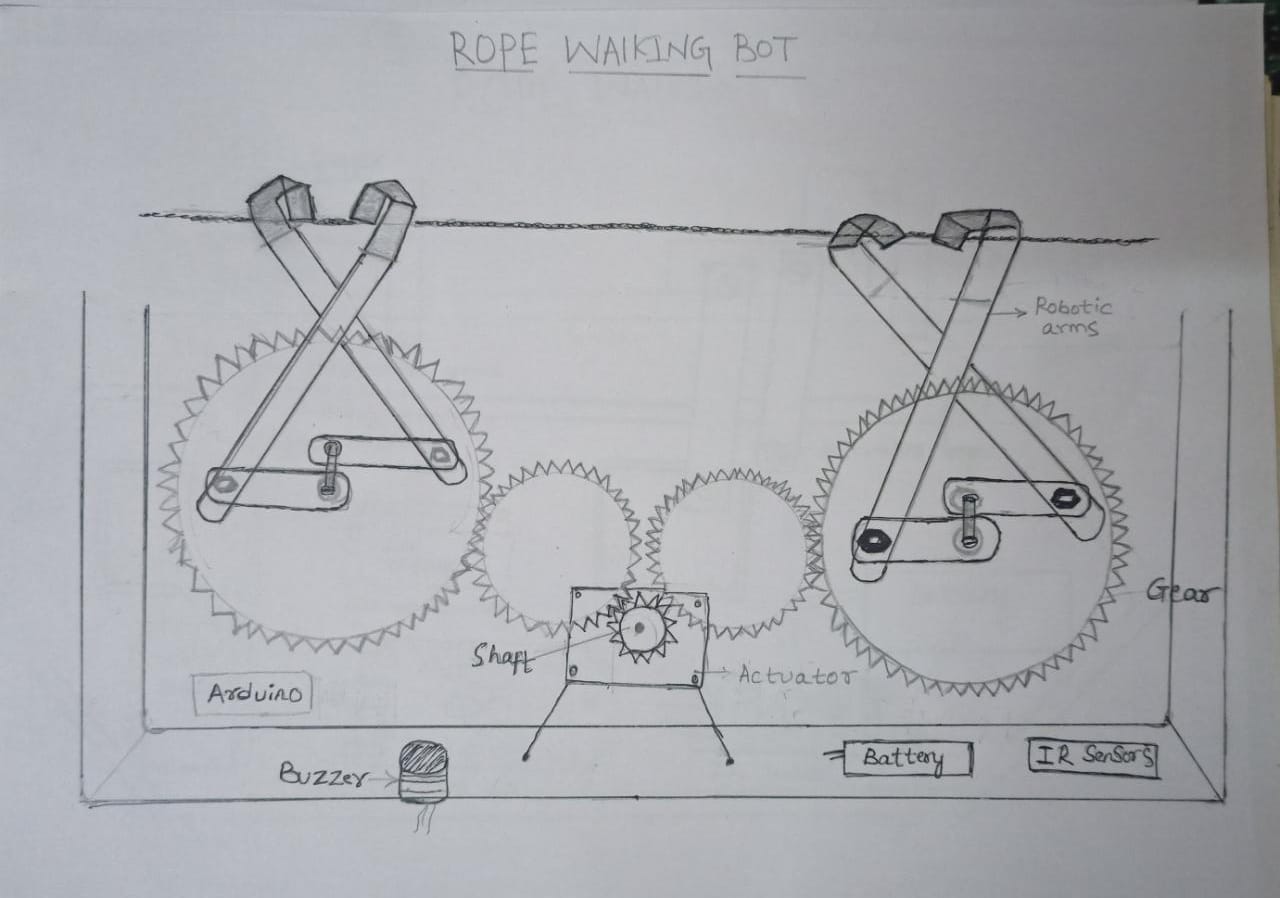 ROPE WALKING BOT
Robotic
arms
Gear
Shaft
Actuator
Arduino
Buzzer
Battery
IR Sensors